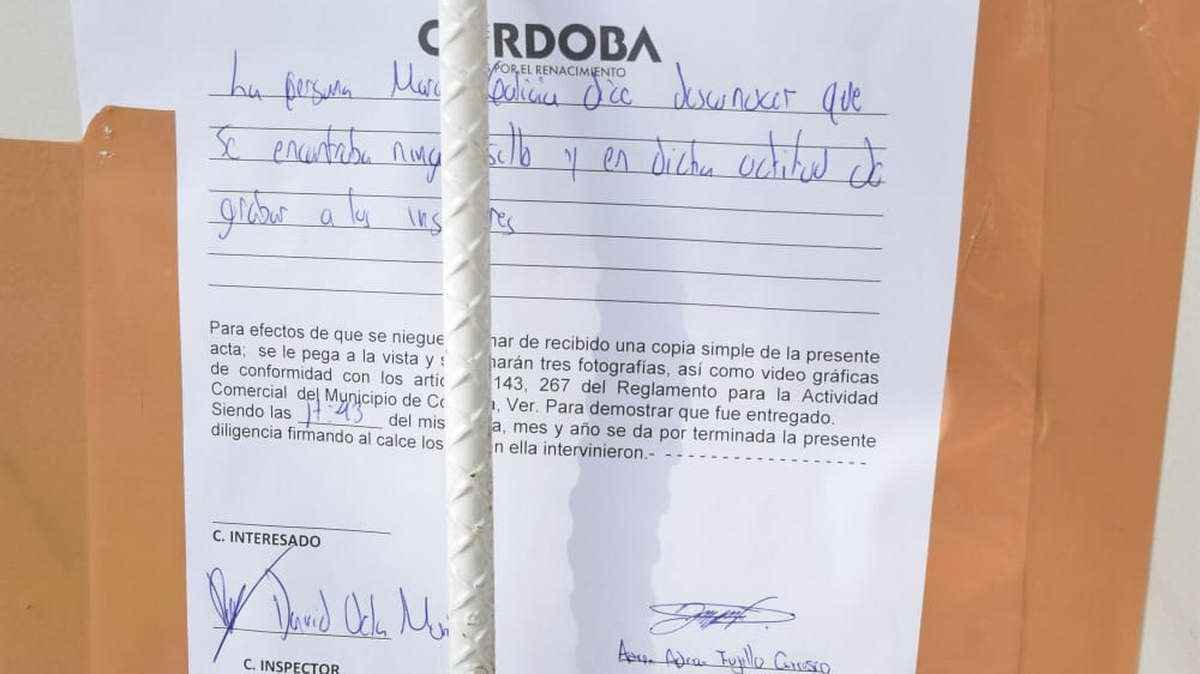 C RDOBA
POR EL RENACIMIENTO
La persona Mar dice desconocer que
Se encontraba ning sello y en dicha actitud de
grabar a los ins res
Para efectos de que se niegue mar de recibido una copia simple de la presente
acta; se le pega a la vista y s marán tres fotografías, así como video gráficas
de conformidad con los artíc 143, 267 del Reglamento para la Actividad
Comercial del Municipio de Có a, Ver. Para demostrar que fue entregado.
Siendo las 17:43 del mis a, mes y año se da por terminada la presente
diligencia firmando al calce los n ella intervinieron.- - - - - - - - - - - - - - - - - - -
C. INTERESADO
David
C. INSPECTOR
Trujillo Carrasco